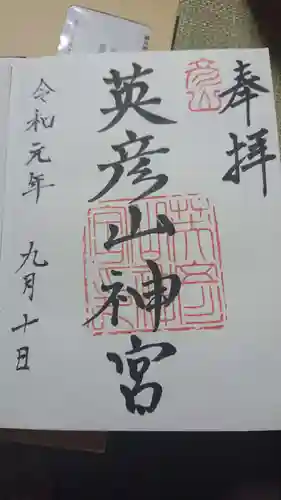 奉拝
彦山
英彦山神宮
令和元年 九月十日